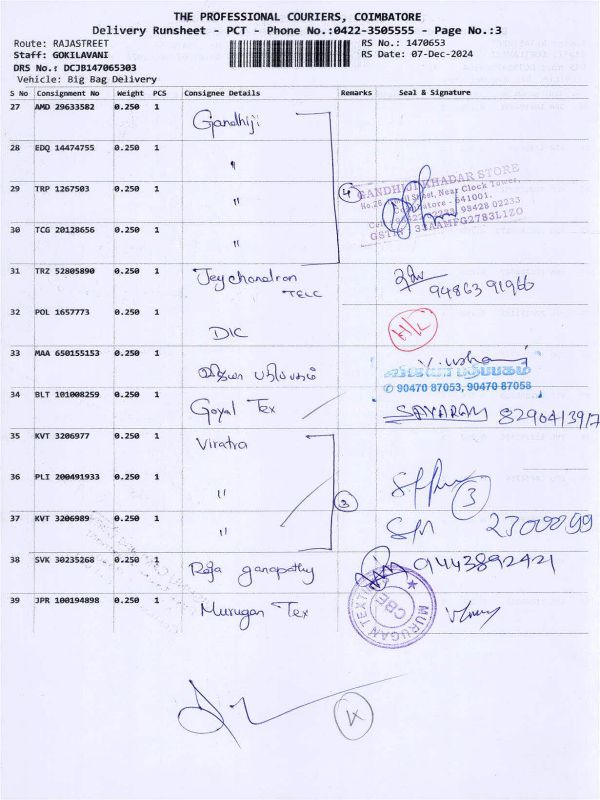 THE PROFESSIONAL COURIERS, COIMBATORE
Delivery Runsheet - PCT - Phone No.:0422-3505555 - Page No.:3
Route: RAJASTREET RS No.: 1470653
Staff: GOKILAVANI RS Date: 07-Dec-2024
DRS No.: DCJB147065303
Vehicle: Big Bag Delivery
S No Consignment No Weight PCS Consignee Details Remarks Seal & Signature
27 AMD 29633582 0.250 1 Gandhiji
28 EDQ 14474755 0.250 1 "
29 TRP 1267503 0.250 1 " 4
GANDHIJI KHADAR STORE
Street, Near Clock Tower,
641001.
98428 02233
GSTIN : 33AAMFG2783L1ZO
30 TCG 20128656 0.250 1 "
31 TRZ 52805890 0.250 1 Jeychandran
TELC 9486391966
32 POL 1657773 0.250 1 DIC H/L
33 MAA 650155153 0.250 1 விஜயா பதிப்பகம் V. Usharani
விஜயா பதிப்பகம்
✆ 90470 87053, 90470 87058
34 BLT 101008259 0.250 1 Goyal Tex
35 KVT 3206977 0.250 1 Viratra
36 PLI 200491933 0.250 1 " 3 3
37 KVT 3206989 0.250 1 "
38 SVK 30235268 0.250 1 Raja ganapathy 9443892421
39 JPR 100194898 0.250 1 Murugan Tex
MURUGAN TEXTILES
CBE